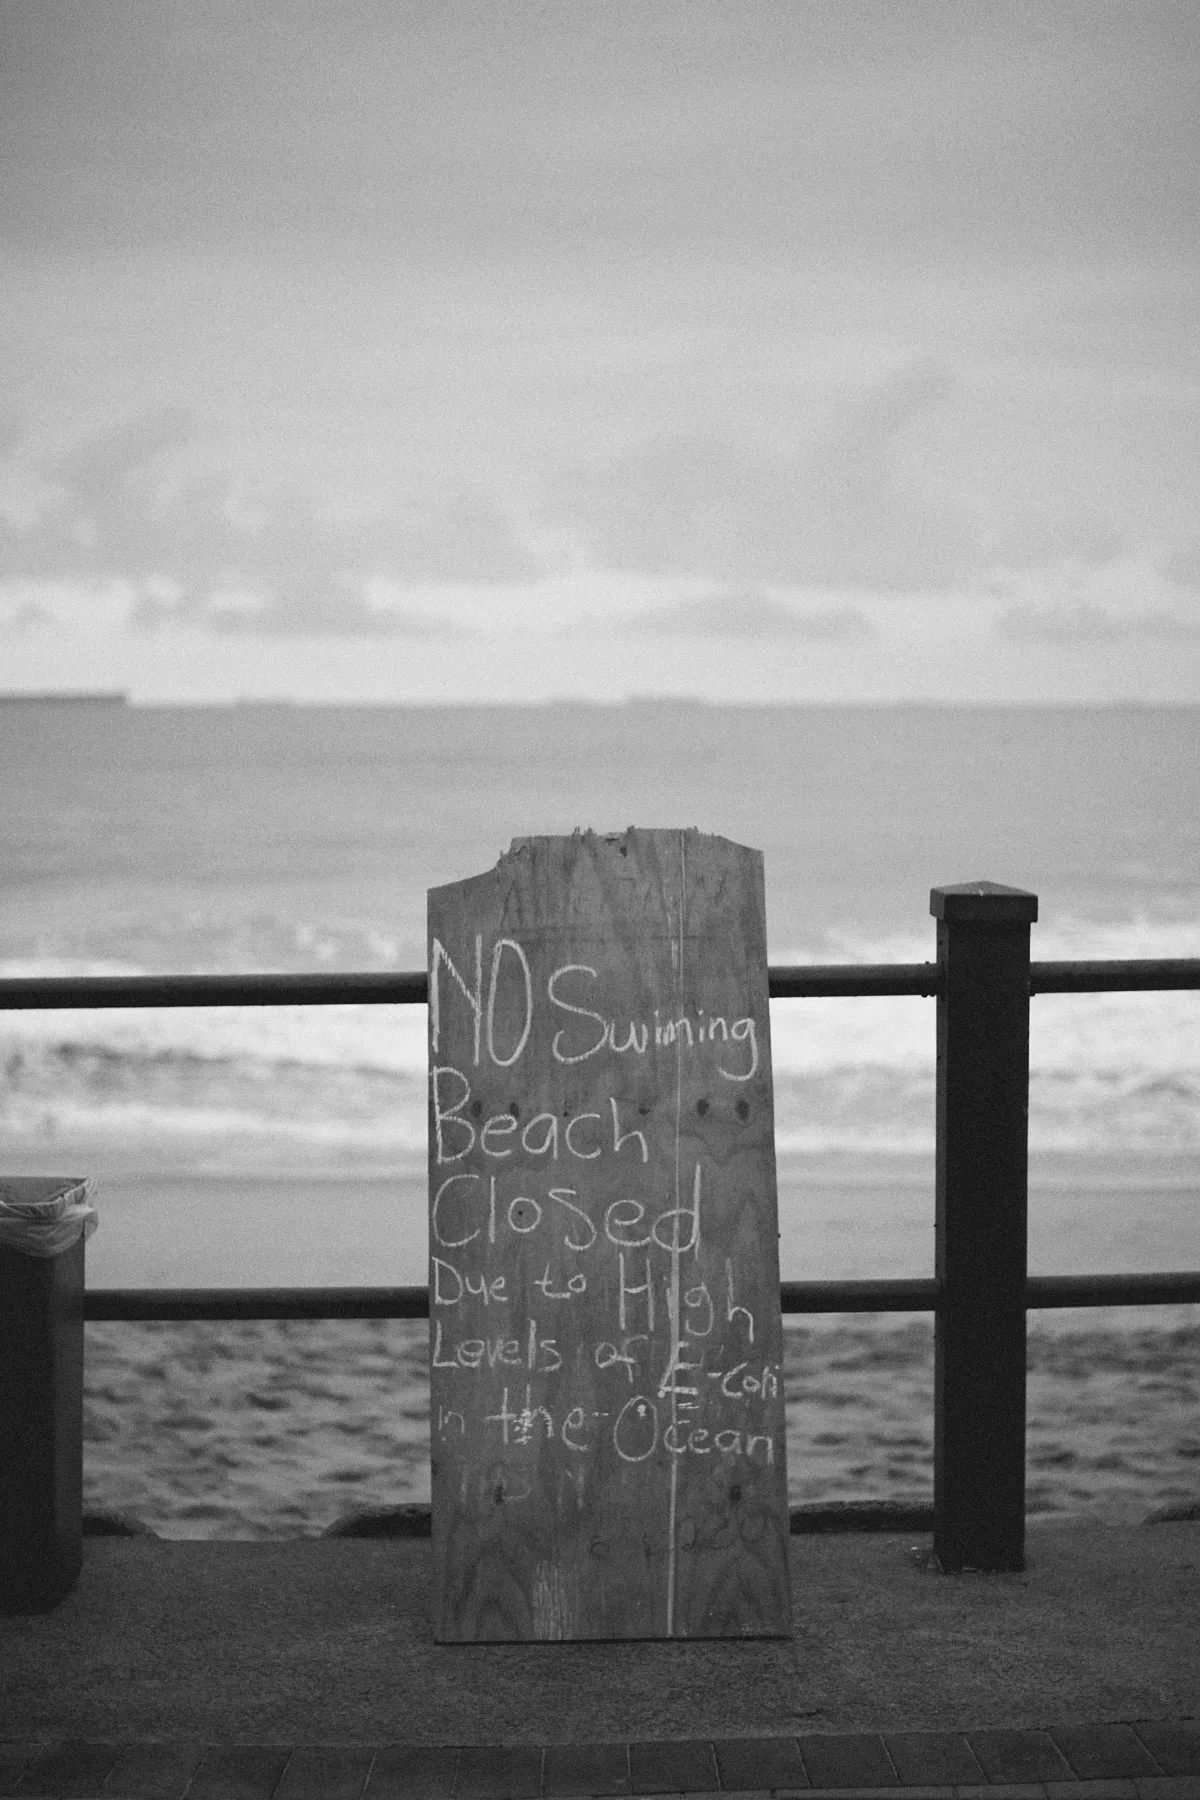 NO Swiming
Beach
Closed
Due to High
Levels of E-coli
in the Ocean